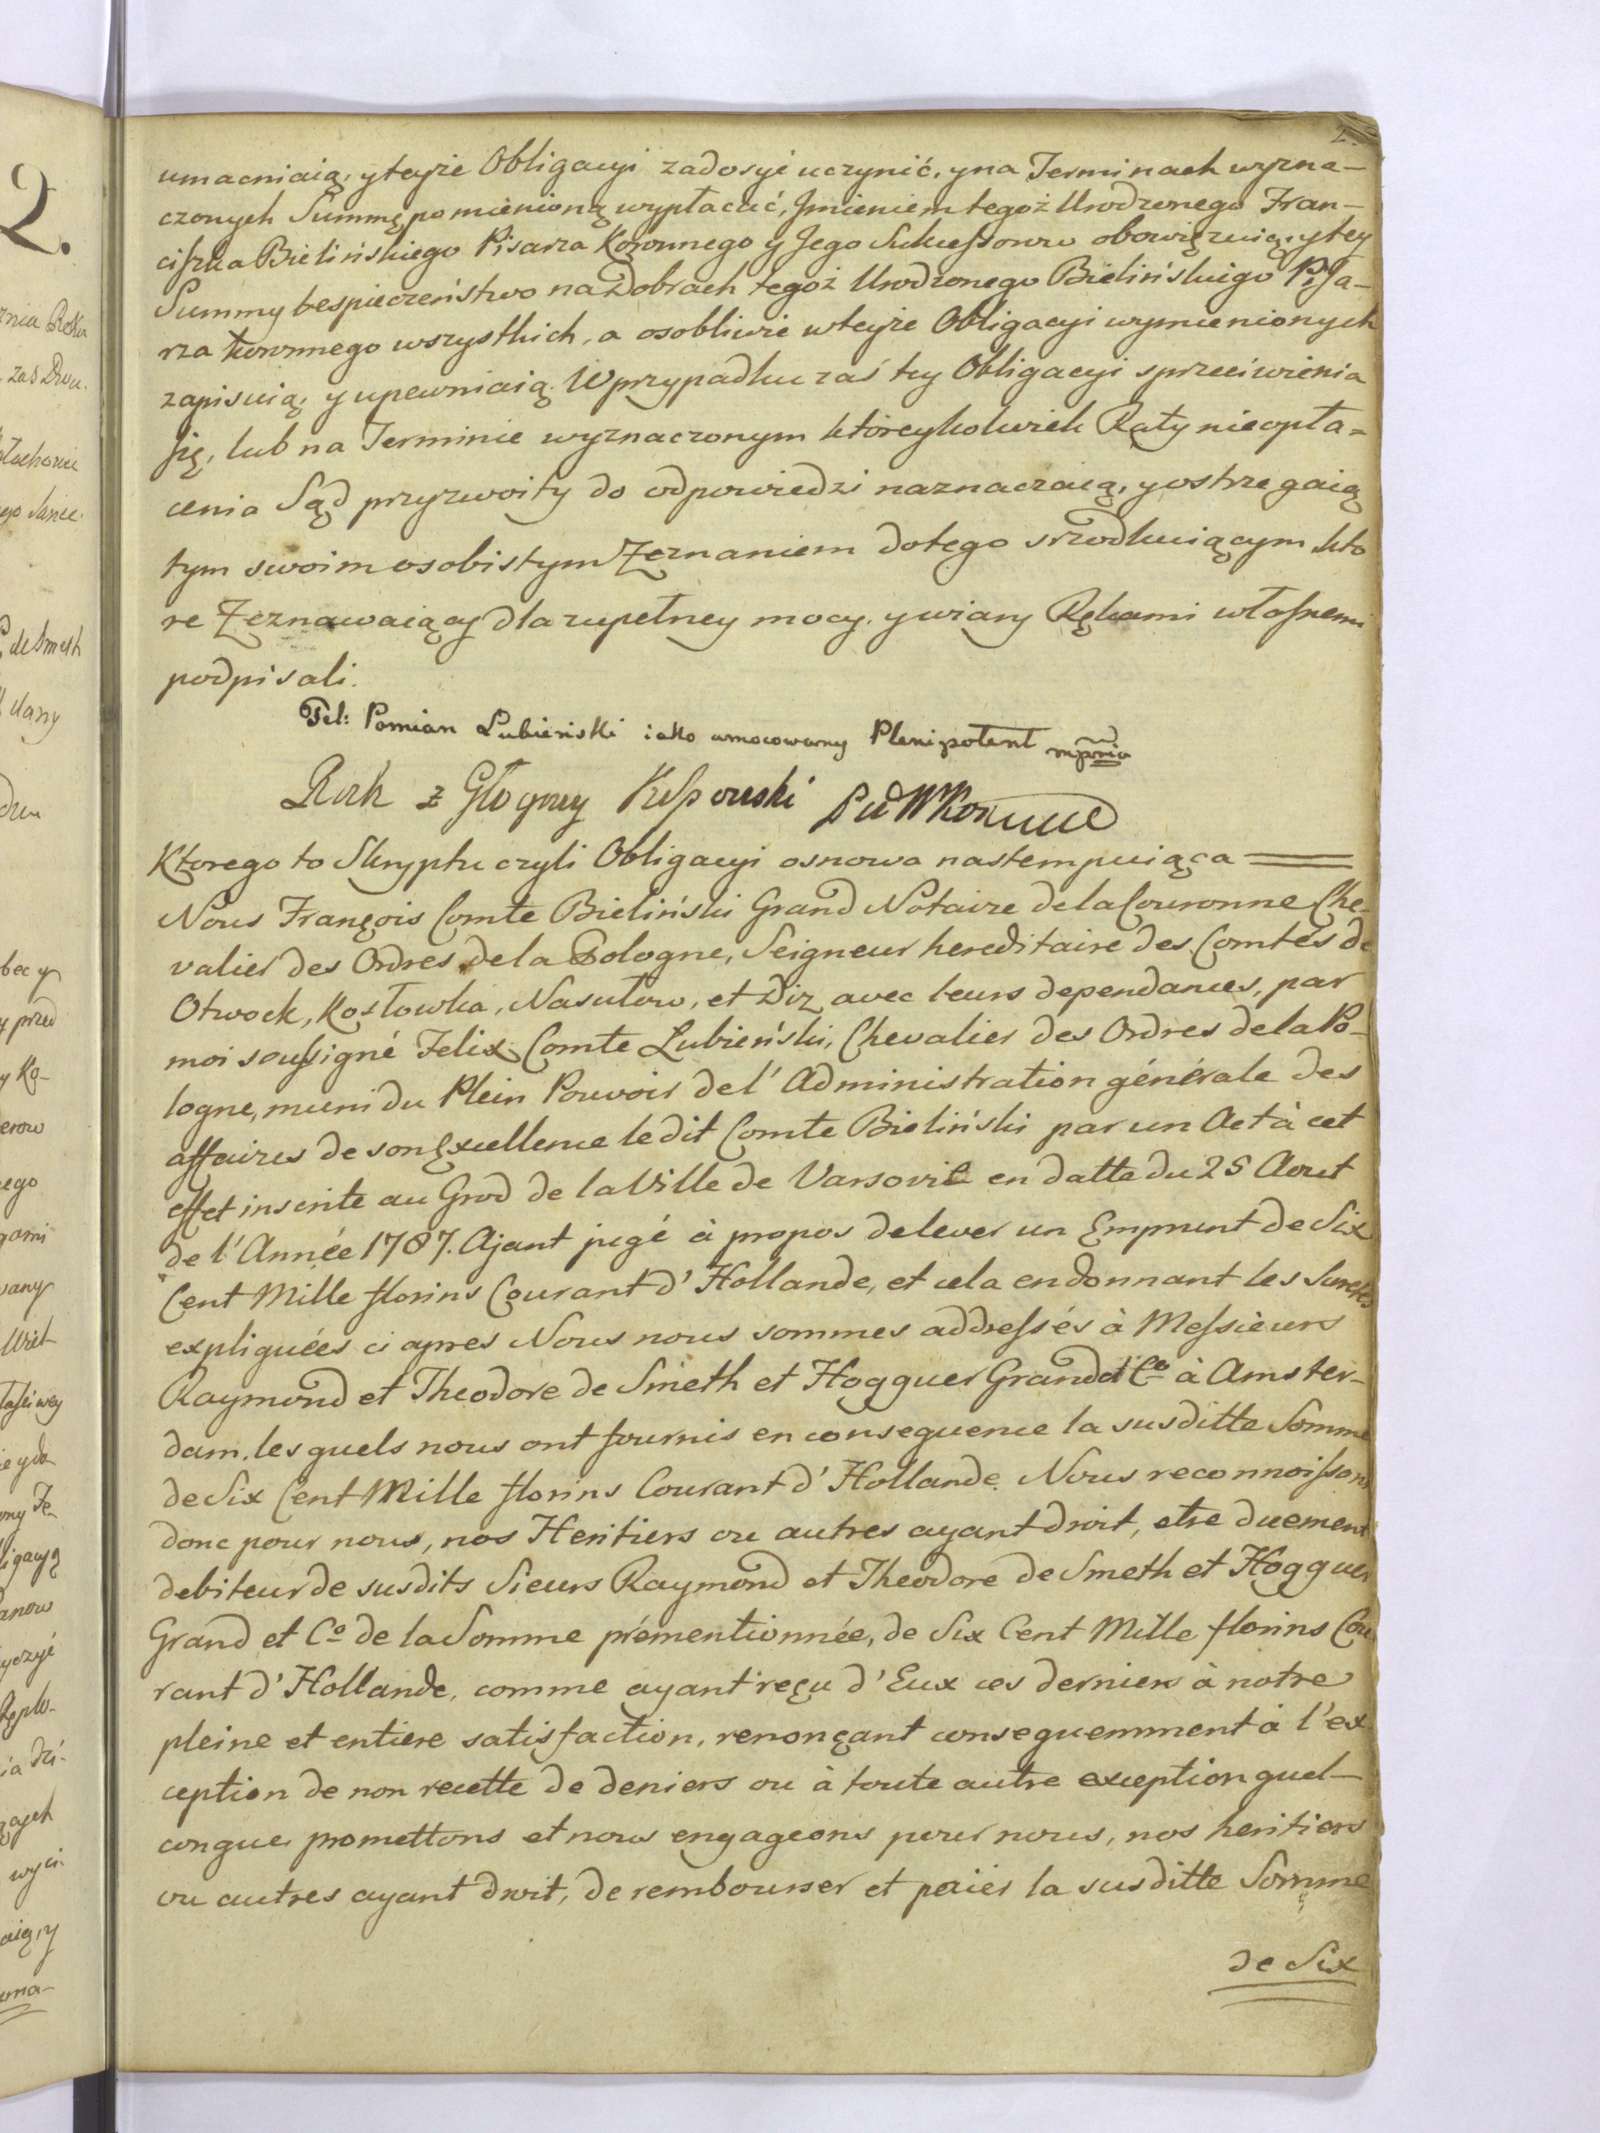 2.
umacniaią, y teyże Obligacyi zadosyć uczynić, y na Terminach wyzna-
czonych Summę pomienioną wypłacać, Jmieniem tegoż Urodzonego Fran-
ciszka Bielińskiego Pisarza Koronnego y Jego Sukcessorow obowięzuią, y tey
Summy bespieczeństwo na Dobrach tegoż Urodzonego Bielińskiego Pisa-
rza Koronnego wszystkich, a osobliwie w teyże Obligacyi wymienionych
zapisuią, y upewniaią. W przypadku zaś tey Obligacyi sprzeciwienia
się, lub na Terminie wyznaczonym któreykolwiek Raty nieopła-
cenia Sąd przyzwoity do odpowiedzi naznaczaią, y ostrzegaią
tym swoim osobistym Zeznaniem do tego srzodkuiącym kto
re Zeznawaiący dla zupełney mocy, y wiary Rękami własnemi
podpisali.
Fel: Pomian Lubieński iako umocowany Plenipotent mpria
Roch z Głogowy Kossowski
Ktorego to Skryptu czyli Obligacyi osnowa nastempuiąca
Nous François Comte Bieliński Grand Notaire de la Couronne Che-
valier des Ordres de la Pologne, Seigneur hereditaire des Comtés de
Otwock, Kozłowka, Nasutow, et Diz avec leurs dependances, par
moi soussigné Felix Comte Lubieński, Chevalier des Ordres de la Po-
logne, muni du Plein Pouvoir de l'Administration générale des
affaires de son Excellence le dit Comte Bieliński par un Act à cet
effet inscrite au Grod de la Ville de Varsovie en datte du 25 Aout
de l'Année 1787. Ajant jugé à propos de lever un Emprunt de Six
Cent Mille florins Courant d'Hollande, et cela en donnant les Suretés
expliquées ci apres Nous nous sommes addressés à Messieurs
Raymond et Theodore de Smeth et Hogguer Grand et Co à Amster-
dam, lesquels nous ont fournis en consequence la susditte Somme
de Six Cent Mille florins Courant d'Hollande. Nous reconnoissons
donc pour nous, nos Heritiers ou autres ayant droit, etre duement
debiteur de susdits Sieurs Raymond et Theodore de Smeth et Hogguer
Grand et Co de la Somme prémentionnée, de Six Cent Mille florins Cou
rant d'Hollande, comme ayant reçu d'Eux ces deniers à notre
pleine et entiere satisfaction, renonçant consequemment à l'ex
ception de non recette de deniers ou à toute autre exception quel-
conque, promettons et nous engageons pour nous, nos heritiers
ou autres ayant droit, de rembourser et païer la susditte Somme
de Six